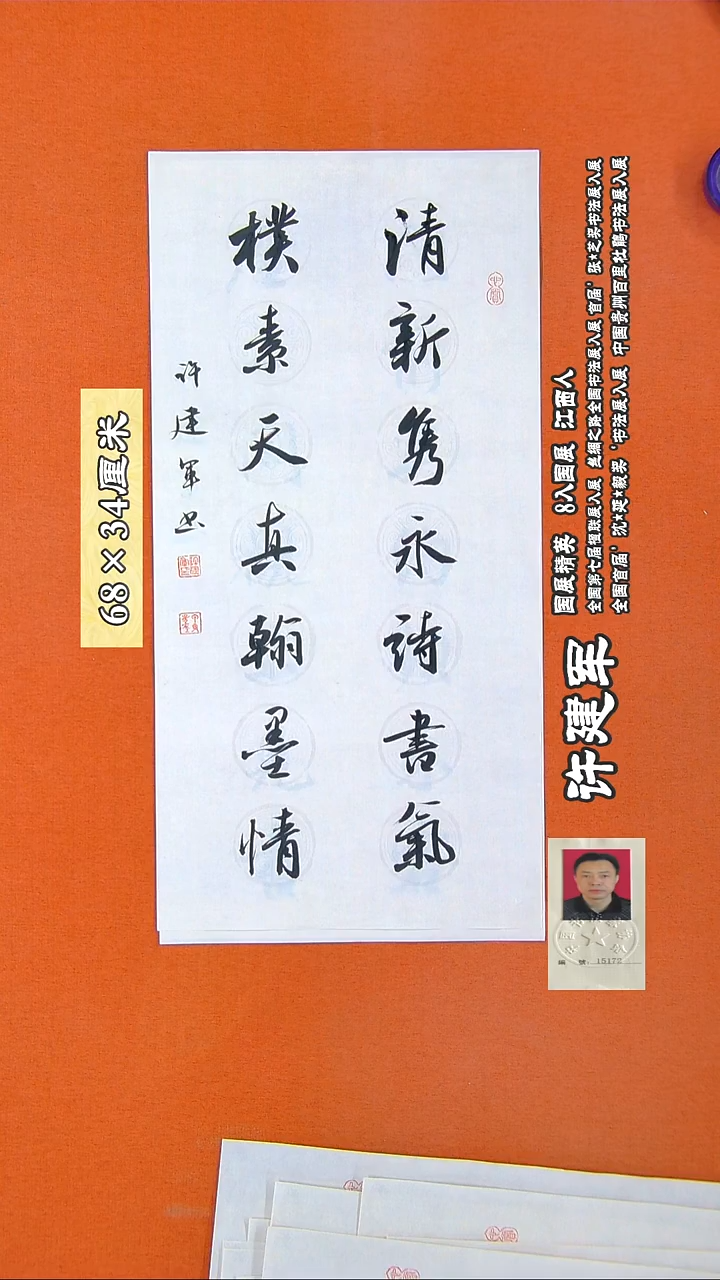 清新雋永詩書氣
樸素天真翰墨情
许建军书
68×34厘米
国展精英 8入国展 江西人
全国第七届楹联展入展 丝绸之路全国书法展入展 首届'张★芝奖书法展入展
全国首届'沈★延★毅奖'书法展入展 中国贵州百里杜鹃书法展入展
许建军
编 号: 15172